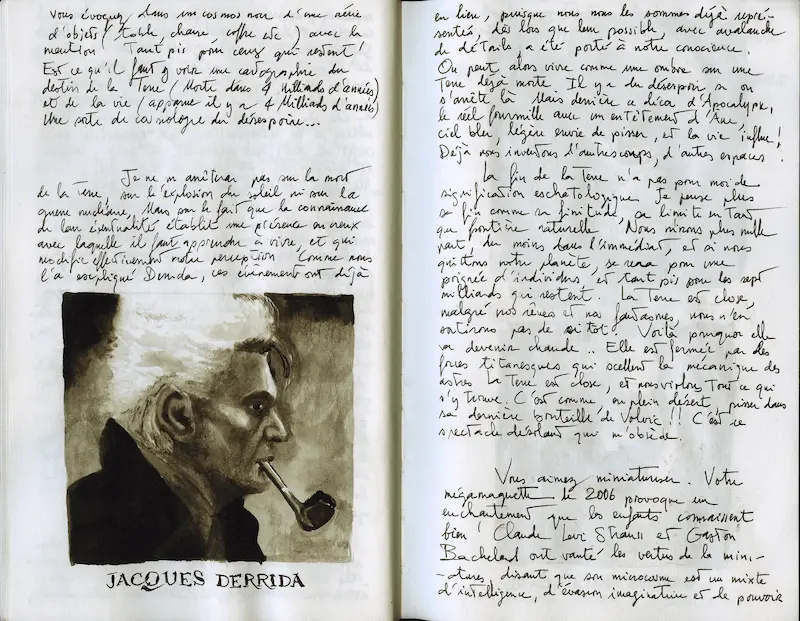 Vous évoquez dans un cosmos noir d'une série
d'objets (table, chaise, coffre etc) avec la
mention "Tant pis pour ceux qui restent"
Est ce qu'il faut y voir une cartographie du
destin de la Terre (Morte dans 4 Milliards d'années)
et de la vie (apparue il y a 4 Milliards d'années)
Une sorte de cosmologie du désespoir...
Je ne m'arrêterai pas sur la mort
de la Terre, sur l'explosion du soleil ni sur la
guerre nucléaire, Mais sur le fait que la connaissance
de leur éventualité établit une présence en creux
avec laquelle il faut apprendre à vivre, et qui
modifie effectivement notre perception. Comme nous
l'a expliqué Derrida, ces évènement ont déjà
JACQUES DERRIDA
eu lieu, puisque nous nous les sommes déjà repré-
sentés, dès lors que leur possible, avec avalanche
de détails, a été porté à notre conscience.
On peut alors vivre comme une ombre sur une
Terre déjà morte. Il y a du désespoir si on
s'arrête là. Mais derrière ce déca d'Apocalypse,
le réel fourmille avec un entêtement d'Ane,
ciel bleu, légère envie de pisser, et la vie influe!
Déjà nous inventons d'autres corps, d'autres espaces.
La fin de la Terre n'a pas pour moi de
signification eschatologique. Je pense plus
sa fin comme sa finitude, sa limite en Tant
que frontière naturelle. Nous n'irons plus nulle
part, du moins dans l'immédiat, et si nous
quittons notre planète, se sera pour une
poignée d'individus, et tant pis pour les sept
milliards qui restent. La Terre est close,
malgré nos rêves et nos fantasmes, nous n'en
sortirons pas de si tot. Voilà pourquoi elle
va devenir chaude.. Elle est fermée par des
forces titanesques qui scellent la mécanique des
astres. La Terre est close, et nous violons Tout ce qui
s'y trouve. C'est comme, en plein désert, pisser dans
sa dernière bouteille de Volvic!! C'est ce
spectacle désolant qui m'obsède.
Vous aimez miniaturiser. Votre
mégamaquette de 2006 provoque un
enchantement que les enfants connaissent
bien! Claude Levi Strauss et Gaston
Bachelard ont vanté les vertus de la mini-
-atures, disant que son microcosme est un mixte
d'intelligence, d'évasion imaginative et de pouvoir